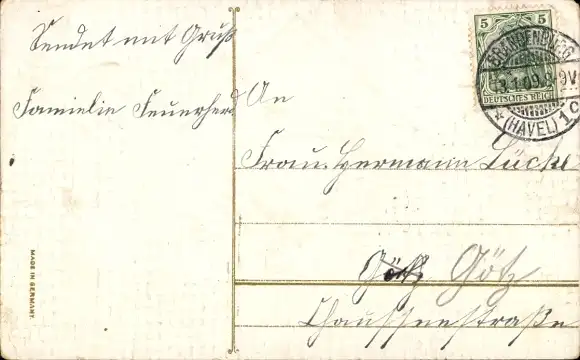 Sendet mit Gruß
Famielie Feuerherd
An
Frau. Hermann Lücke
Götz Götz
Chausseestraße
MADE IN GERMANY.
5 5
DEUTSCHES REICH
BRANDENBURG
3.1.09.8-9V.
* (HAVEL) 1c